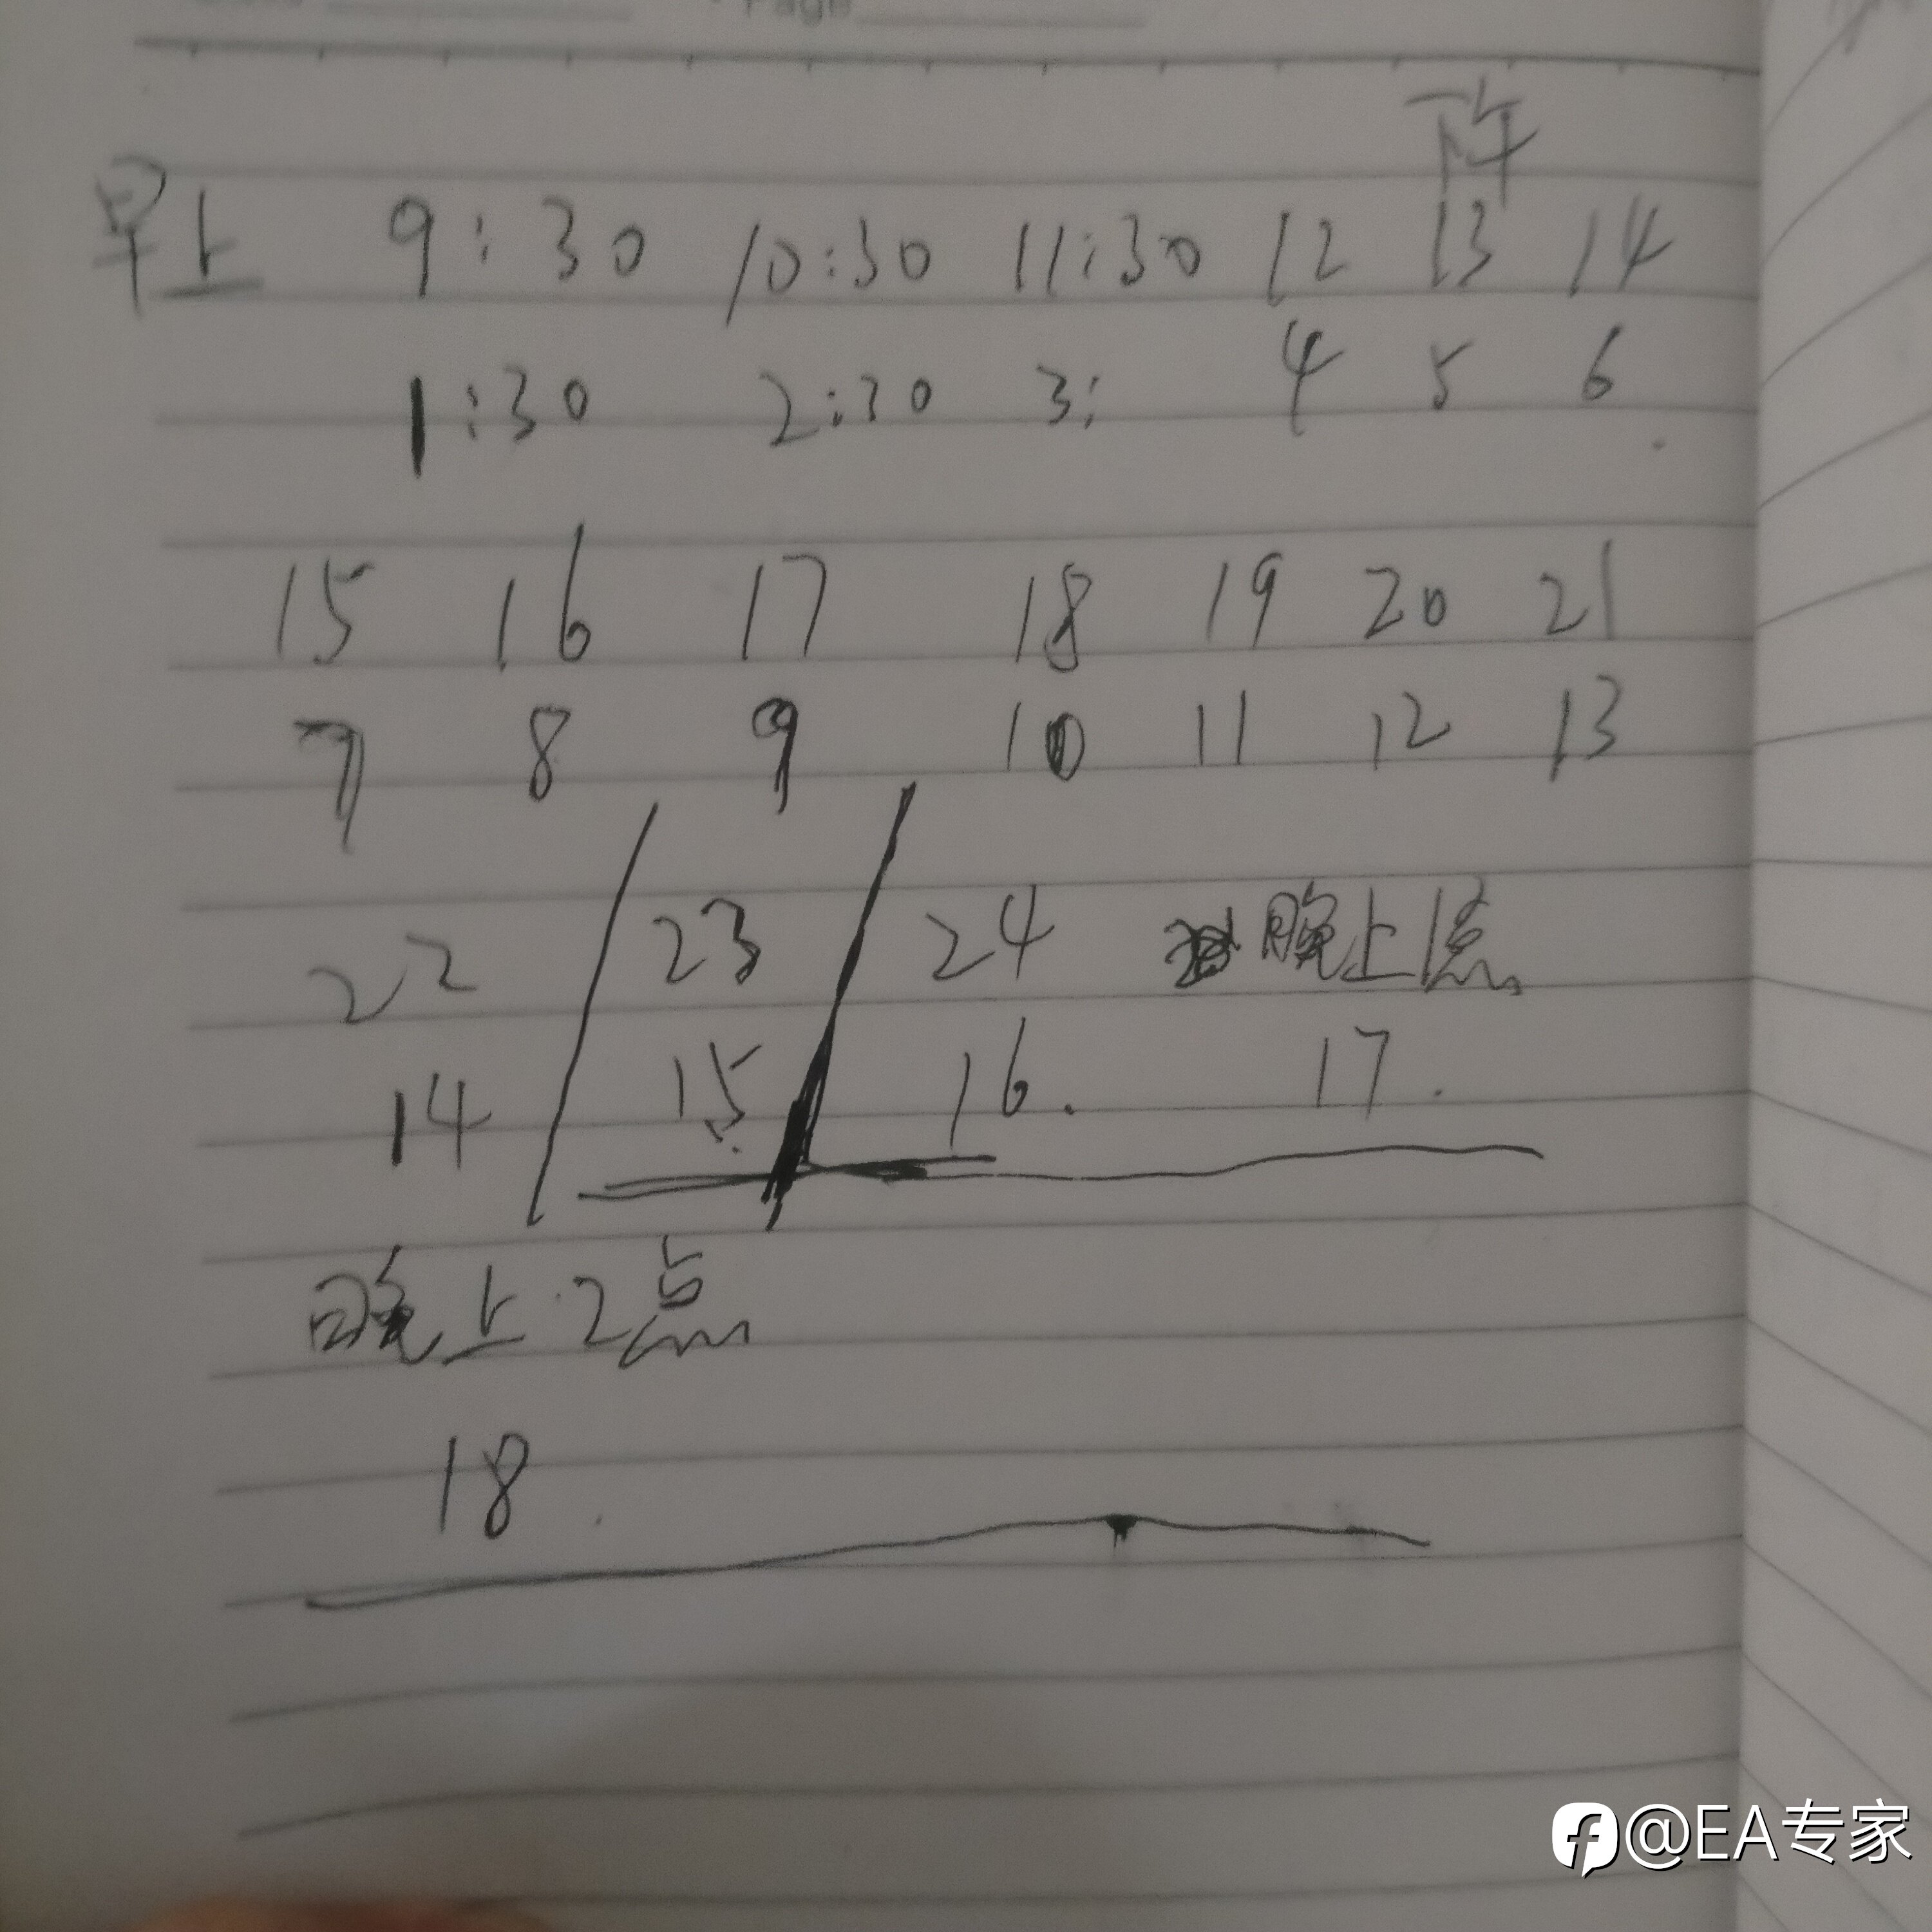 Page
下午
早上 9:30 10:30 11:30 12 13 14
1:30 2:30 3: 4 5 6
15 16 17 18 19 20 21
7 8 9 10 11 12 13
22 23 24 晚上1点
14 15 16. 17.
晚上2点
18.
@EA专家